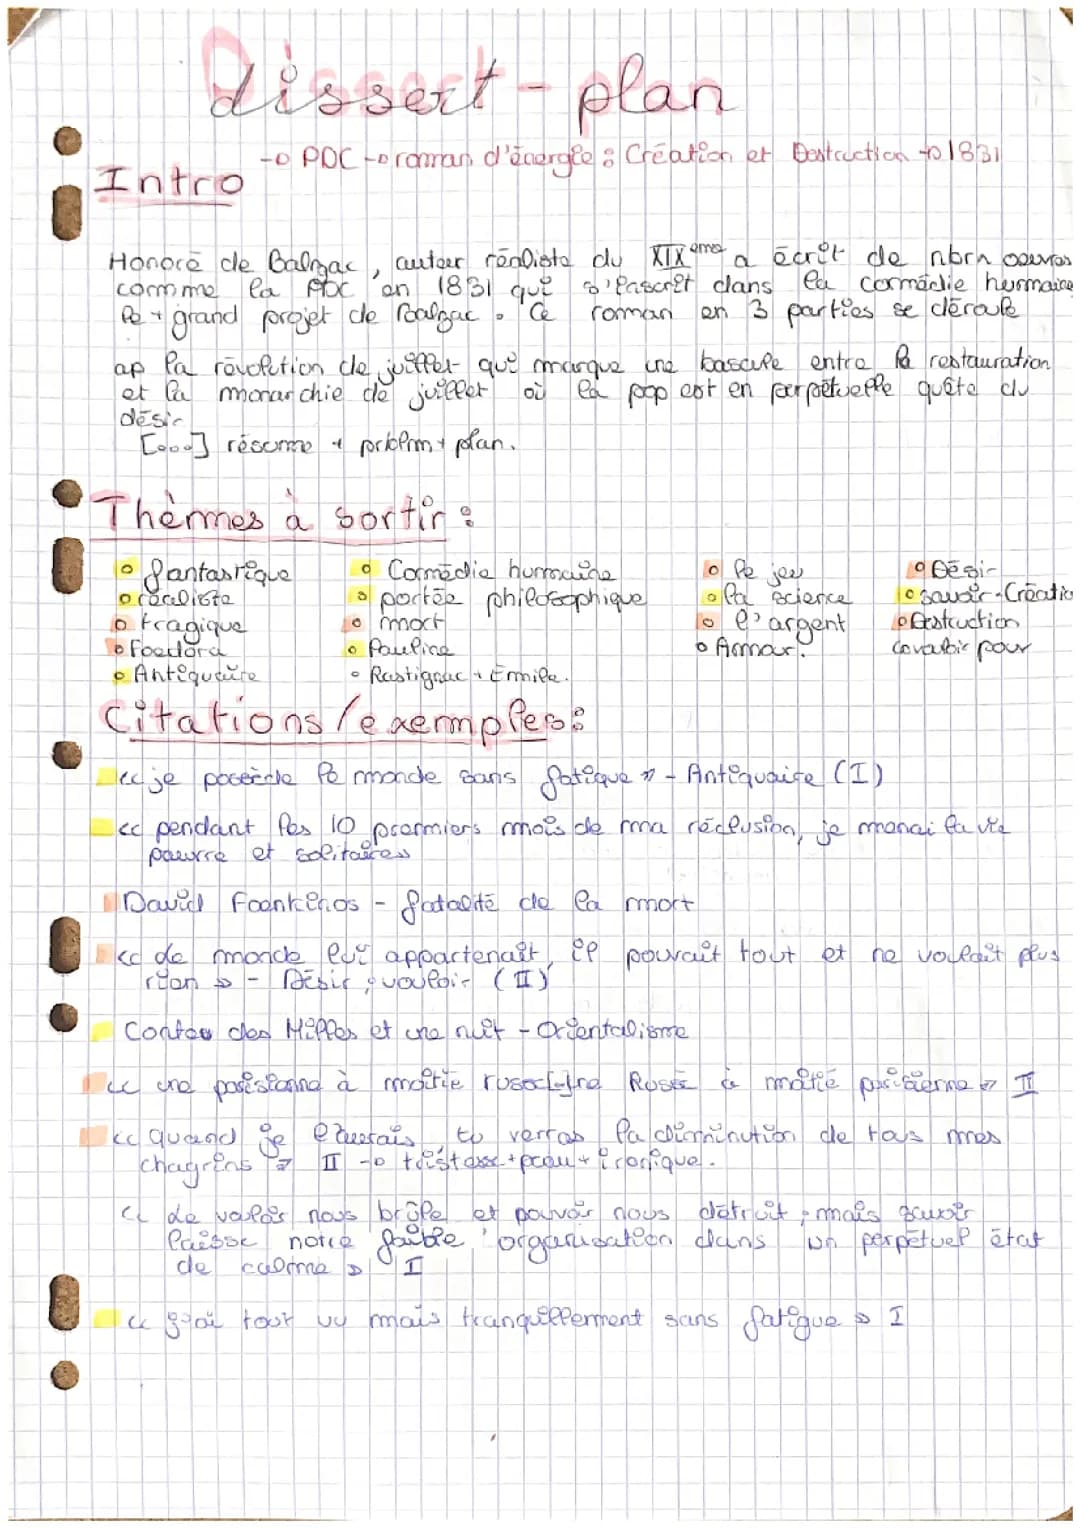 dissert - plan
-o PDC -o roman d'énergie : Création et Destruction -o 1831
Intro
Honoré de Balzac, auteur réaliste du XIXème a écrit de nbrx oeuvres
comme la PDC en 1831 qui s'inscrit dans la comédie humaine
le + grand projet de Balzac. Ce roman en 3 parties se déroule
ap la révolution de juillet qui marque une bascule entre la restauration
et la monarchie de juillet où la pop est en perpétuelle quête du
désir
[...] résume + prblm + plan.
Thèmes à sortir :
o fantastique o Comédie humaine o le jeu o Désir
o réaliste o portée philosophique o la science o savoir - Créatio
o tragique o mort o l'argent o Destruction
o Foedora o Pauline o Amour. pour
o Antiquaire o Rastignac + Emile.
Citations / exemples :
« je possède le monde sans fatigue » - Antiquaire (I)
« pendant les 10 premiers mois de ma réclusion, je menai la vie
pauvre et solitaire »
David Foenkinos - fatalité de la mort
« le monde lui appartenait, il pouvait tout et ne voulait plus
rien » - Désir, vouloir (II)
Contes des Milles et une nuit - Orientalisme
« une parisienne à moitié russe, une Russe à moitié parisienne » II
« quand je tu verras la diminution de tous mes
chagrins » II -o tristesse + peau + ironique.
« le vouloir nous brûle et pouvoir nous détruit ; mais savoir
laisse notre faible organisation dans un perpétuel état
de calme » I
« j'ai tout vu mais tranquillement sans fatigue » I